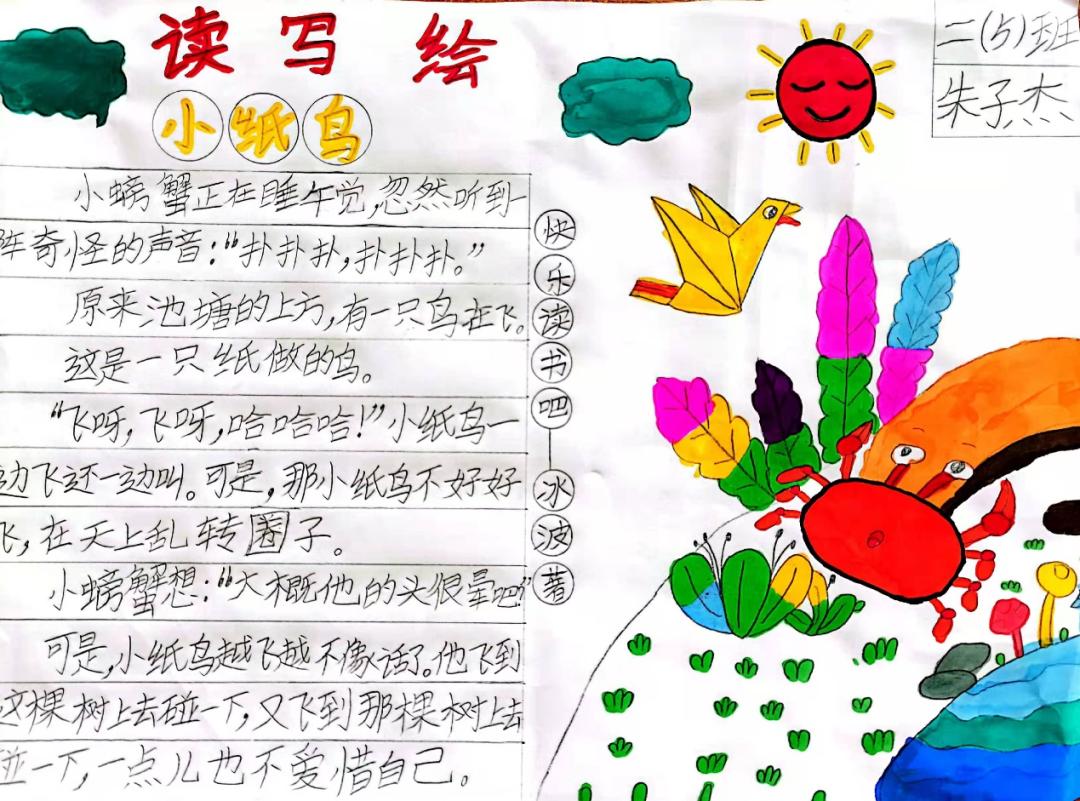 读写绘
二(5)班
朱子杰
小纸鸟
小螃蟹正在睡午觉,忽然听到一
阵奇怪的声音:“扑扑扑,扑扑扑。”
原来池塘的上方,有一只鸟在飞。
这是一只纸做的鸟。
“飞呀,飞呀,哈哈哈!”小纸鸟一
边飞还一边叫。可是,那小纸鸟不好好
飞,在天上乱转圈子。
小螃蟹想:“大概他的头很晕吧”
可是,小纸鸟越飞越不像话了。他飞到
这棵树上去碰一下,又飞到那棵树上去
碰一下,一点儿也不爱惜自己。
快乐读书吧—冰波著